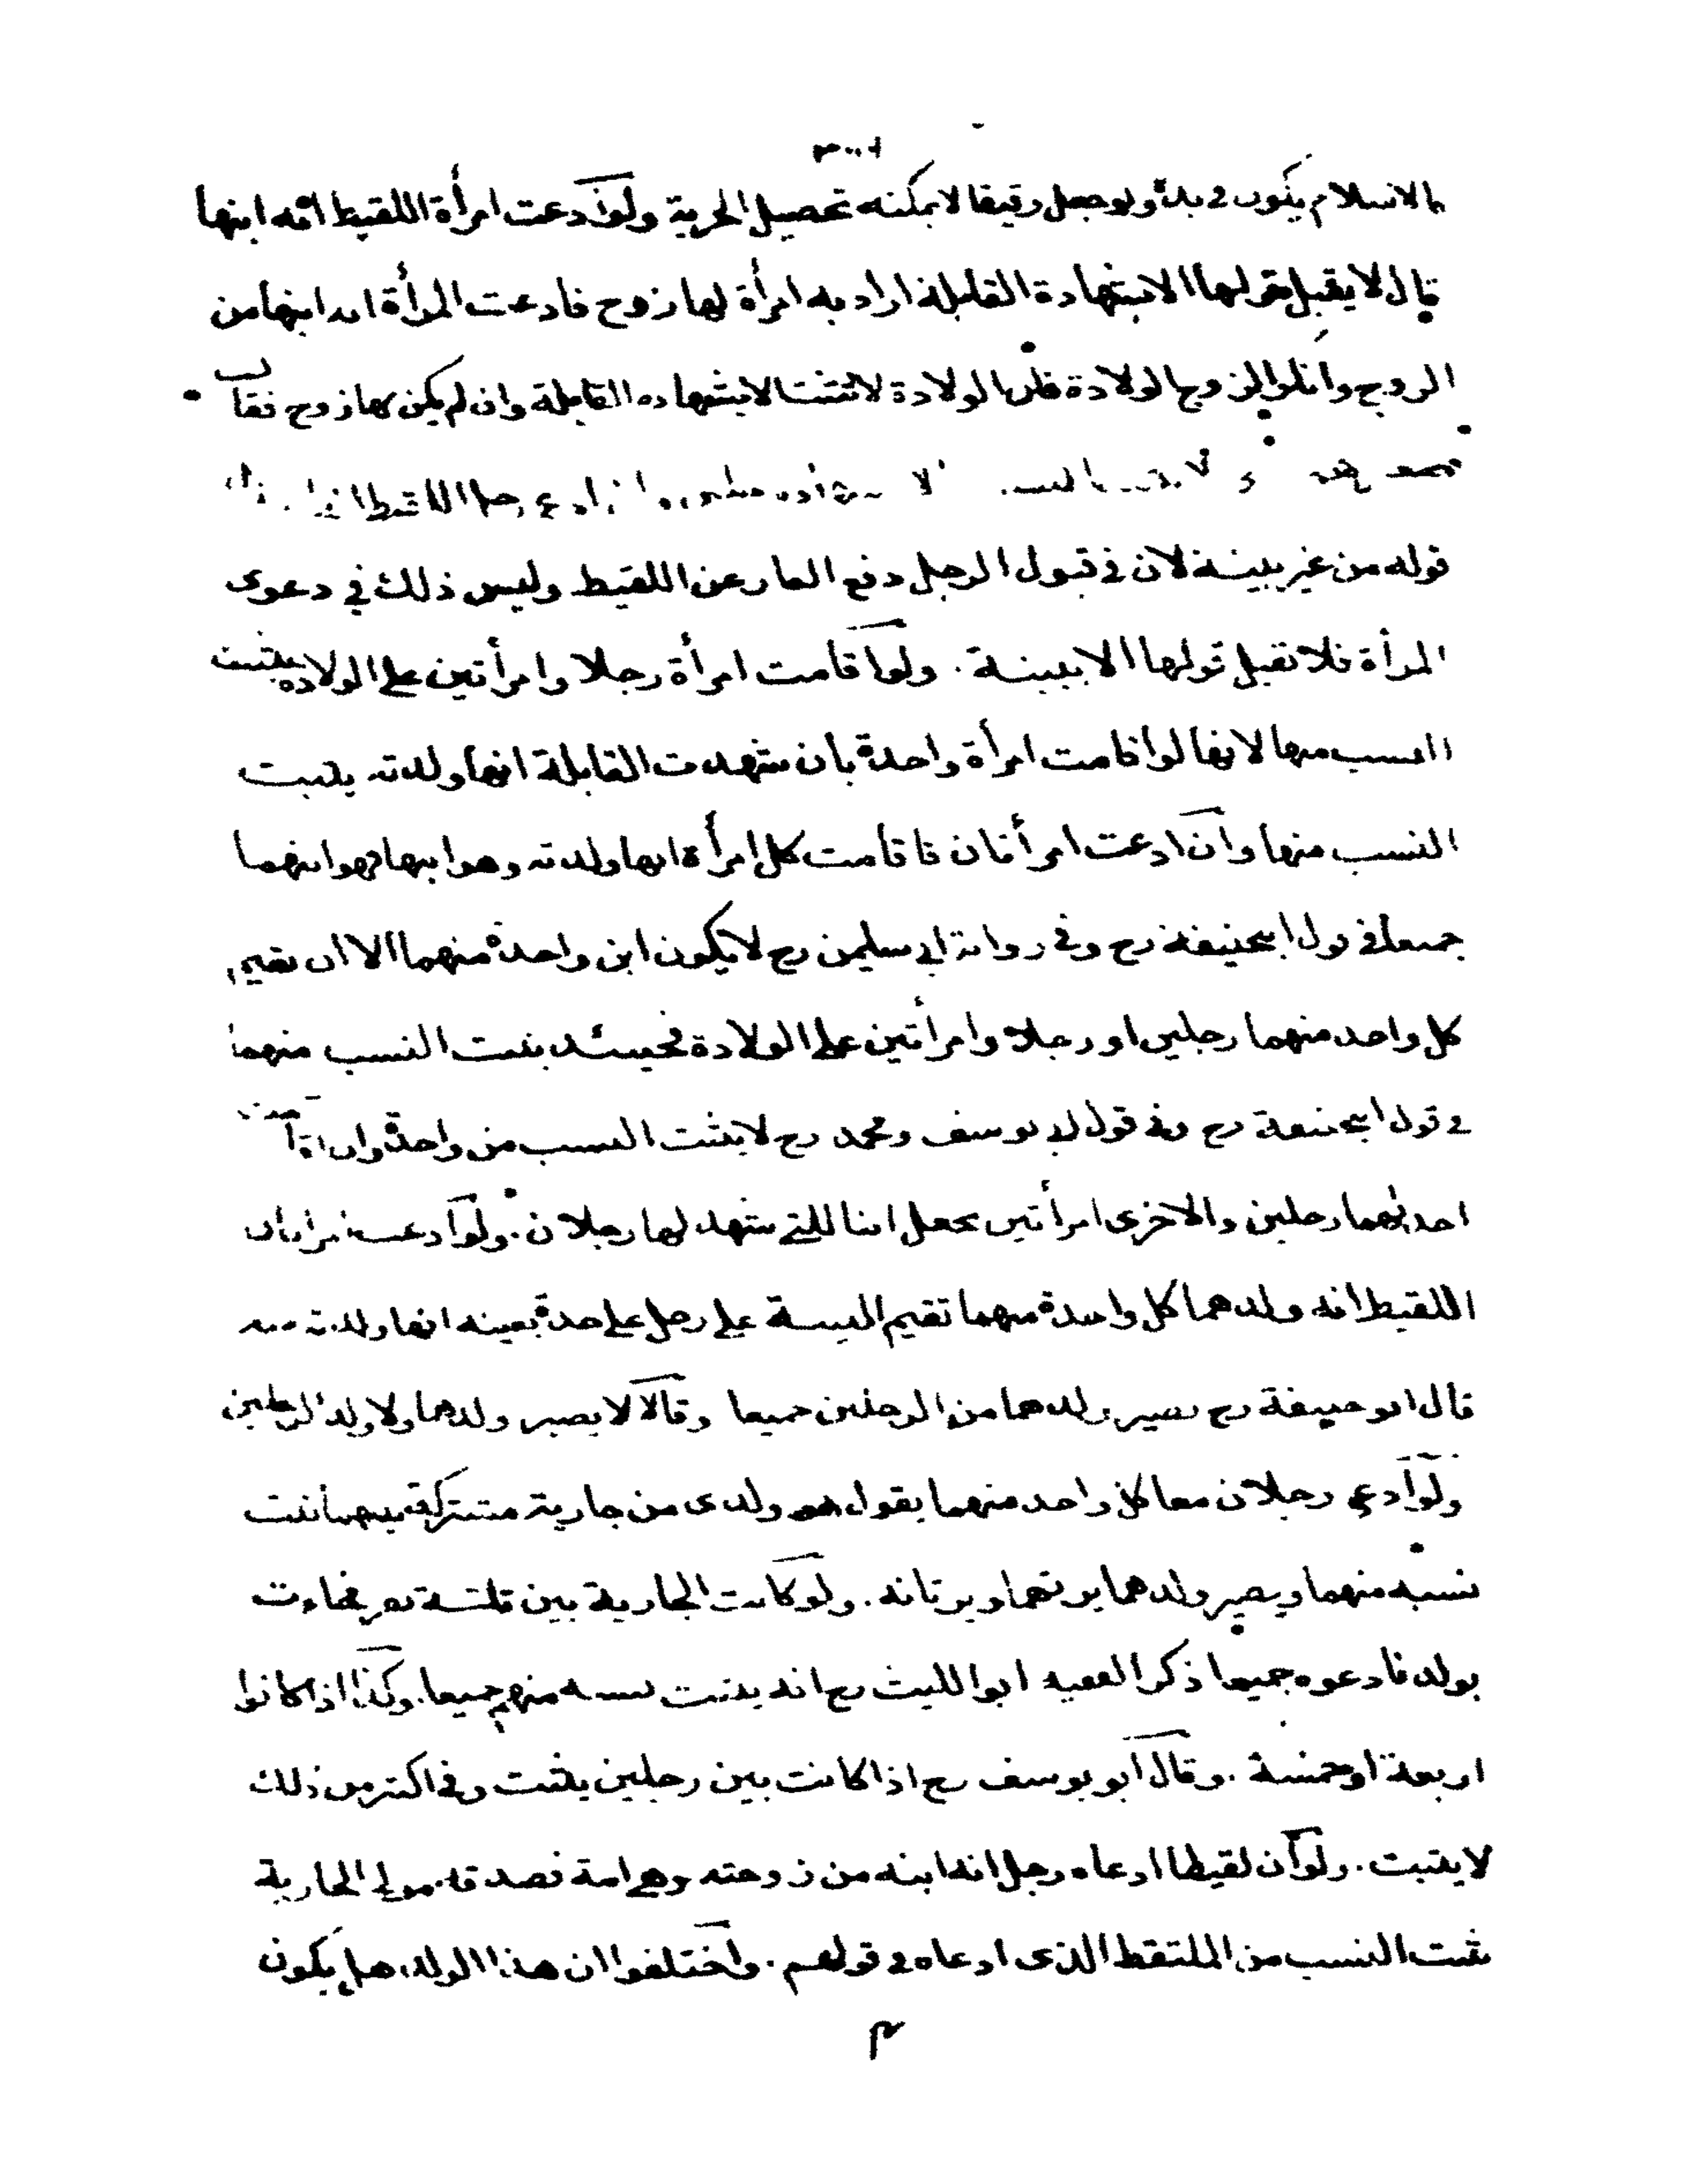 بالاسلام يكون في يده ولو جعل رقيقا لا يمكنه تحصيل الحرية ولو ادعت امرأة اللقيط انه ابنها
قال لا يقبل قولها الا بشهادة القابلة اراد به امرأة لها زوج فادعت المرأة انه ابنها من
الزوج وانكر الزوج الولادة فان الولادة لا تثبت الا بشهادة القابلة وان لم يكن لها زوج فقا
ادعى رجل اللقيط
قوله من غير بينة لان في قبول الرجل دفع العار عن اللقيط وليس ذلك في دعوى
المرأة فلا تقبل قولها الا ببينة . ولو اقامت امرأة رجلا وامرأتين على الولادة يثبت
النسب منها لانها لو اقامت امرأة واحدة بان شهدت القابلة انها ولدته يثبت
النسب منها وان ادعت امرأتان فاقامت كل امرأة انها ولدته وهو ابنها فهو ابنهما
جميعا في قول ابيحنيفة رح وفي رواية ابي سليمن رح لا يكون ابن واحدة منهما الا ان تقيم
كل واحد منهما رجلين او رجلا وامرأتين على الولادة فحينئذ يثبت النسب منهما
في قول ابيحنيفة رح وفي قول ابي يوسف ومحمد رح لا يثبت النسب من واحدة وان اقامت
احديهما رجلين والاخرى امرأتين يجعل ابنا للتي شهد لها رجلان . ولو ادعت امرأتان
اللقيط انه ولدهما كل واحدة منهما تقيم البينة على رجل على حدة بعينه انها ولدته منه
قال ابو حنيفة رح يصير ولدهما من الرجلين جميعا وقالا لا يصير ولدهما ولا ولد الرجلين
ولو ادعى رجلان معا كل واحد منهما يقول هو ولدى من جارية مشتركة بينهما ثبت
نسبه منهما ويصير ولدهما يرثهما ويرثانه . ولو كانت الجارية بين ثلثة نفر فجاءت
بولد فادعوه جميعا ذكر الفقيه ابو الليث رح انه يثبت نسبه منهم جميعا . وكذا اذا كانوا
اربعة او خمسة . وقال ابو يوسف رح اذا كانت بين رجلين يثبت وفي اكثر من ذلك
لا يثبت . ولو ان لقيطا ادعاه رجل انه ابنه من زوجته وهي امة فصدقه مولى الجارية
ثبت النسب من الملتقط الذى ادعاه في قولهم . واختلفوا ان هذا الولد هل يكون